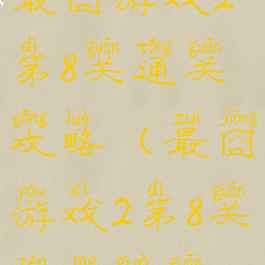 最囧游戏2
dì guān tōng guān
第8关通关
gōng lüè zuì jiǒng
攻略(最囧
yóu xì dì guān
游戏2第8关
zěn me guò guān